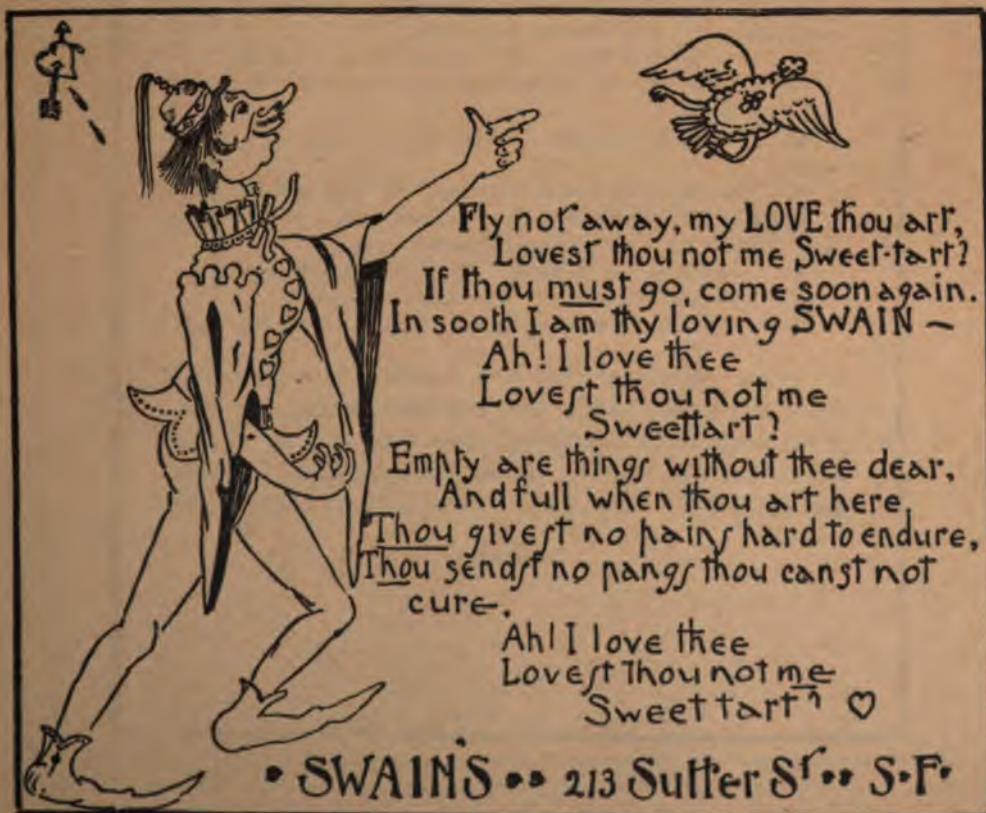 Fly not away, my LOVE thou art,
Lovest thou not me Sweet-tart?
If thou must go, come soon again.
In sooth I am thy loving SWAIN ~
Ah! I love thee
Lovest thou not me
Sweettart?
Empty are things without thee dear,
And full when thou art here,
Thou givest no pains hard to endure,
Thou sendst no pangs thou canst not
cure.
Ah! I love thee
Lovest thou not me
Sweet tart?
• SWAIN'S •• 213 Sutter St •• S•F•